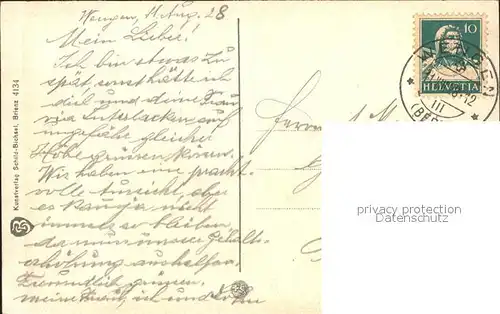 Wengen, 11. Aug. 28
Mein Lieber!
Ich bin etwas zu
spät, sonst hätte ich
dich und deine Frau
via Interlaken auf
ungefähr gleicher
Höhe grüssen können.
Wir haben eine pracht-
volle Aussicht, aber
es kann ja nicht
immer so bleiben
da nun unsere Gehalts-
erhöhung
Freundlich grüssen
meine Frau, ich und
Kunstverlag Schild-Bichsel, Brienz 4134
10
HELVETIA
WENGEN
III
Herrn
privacy protection
Datenschutz